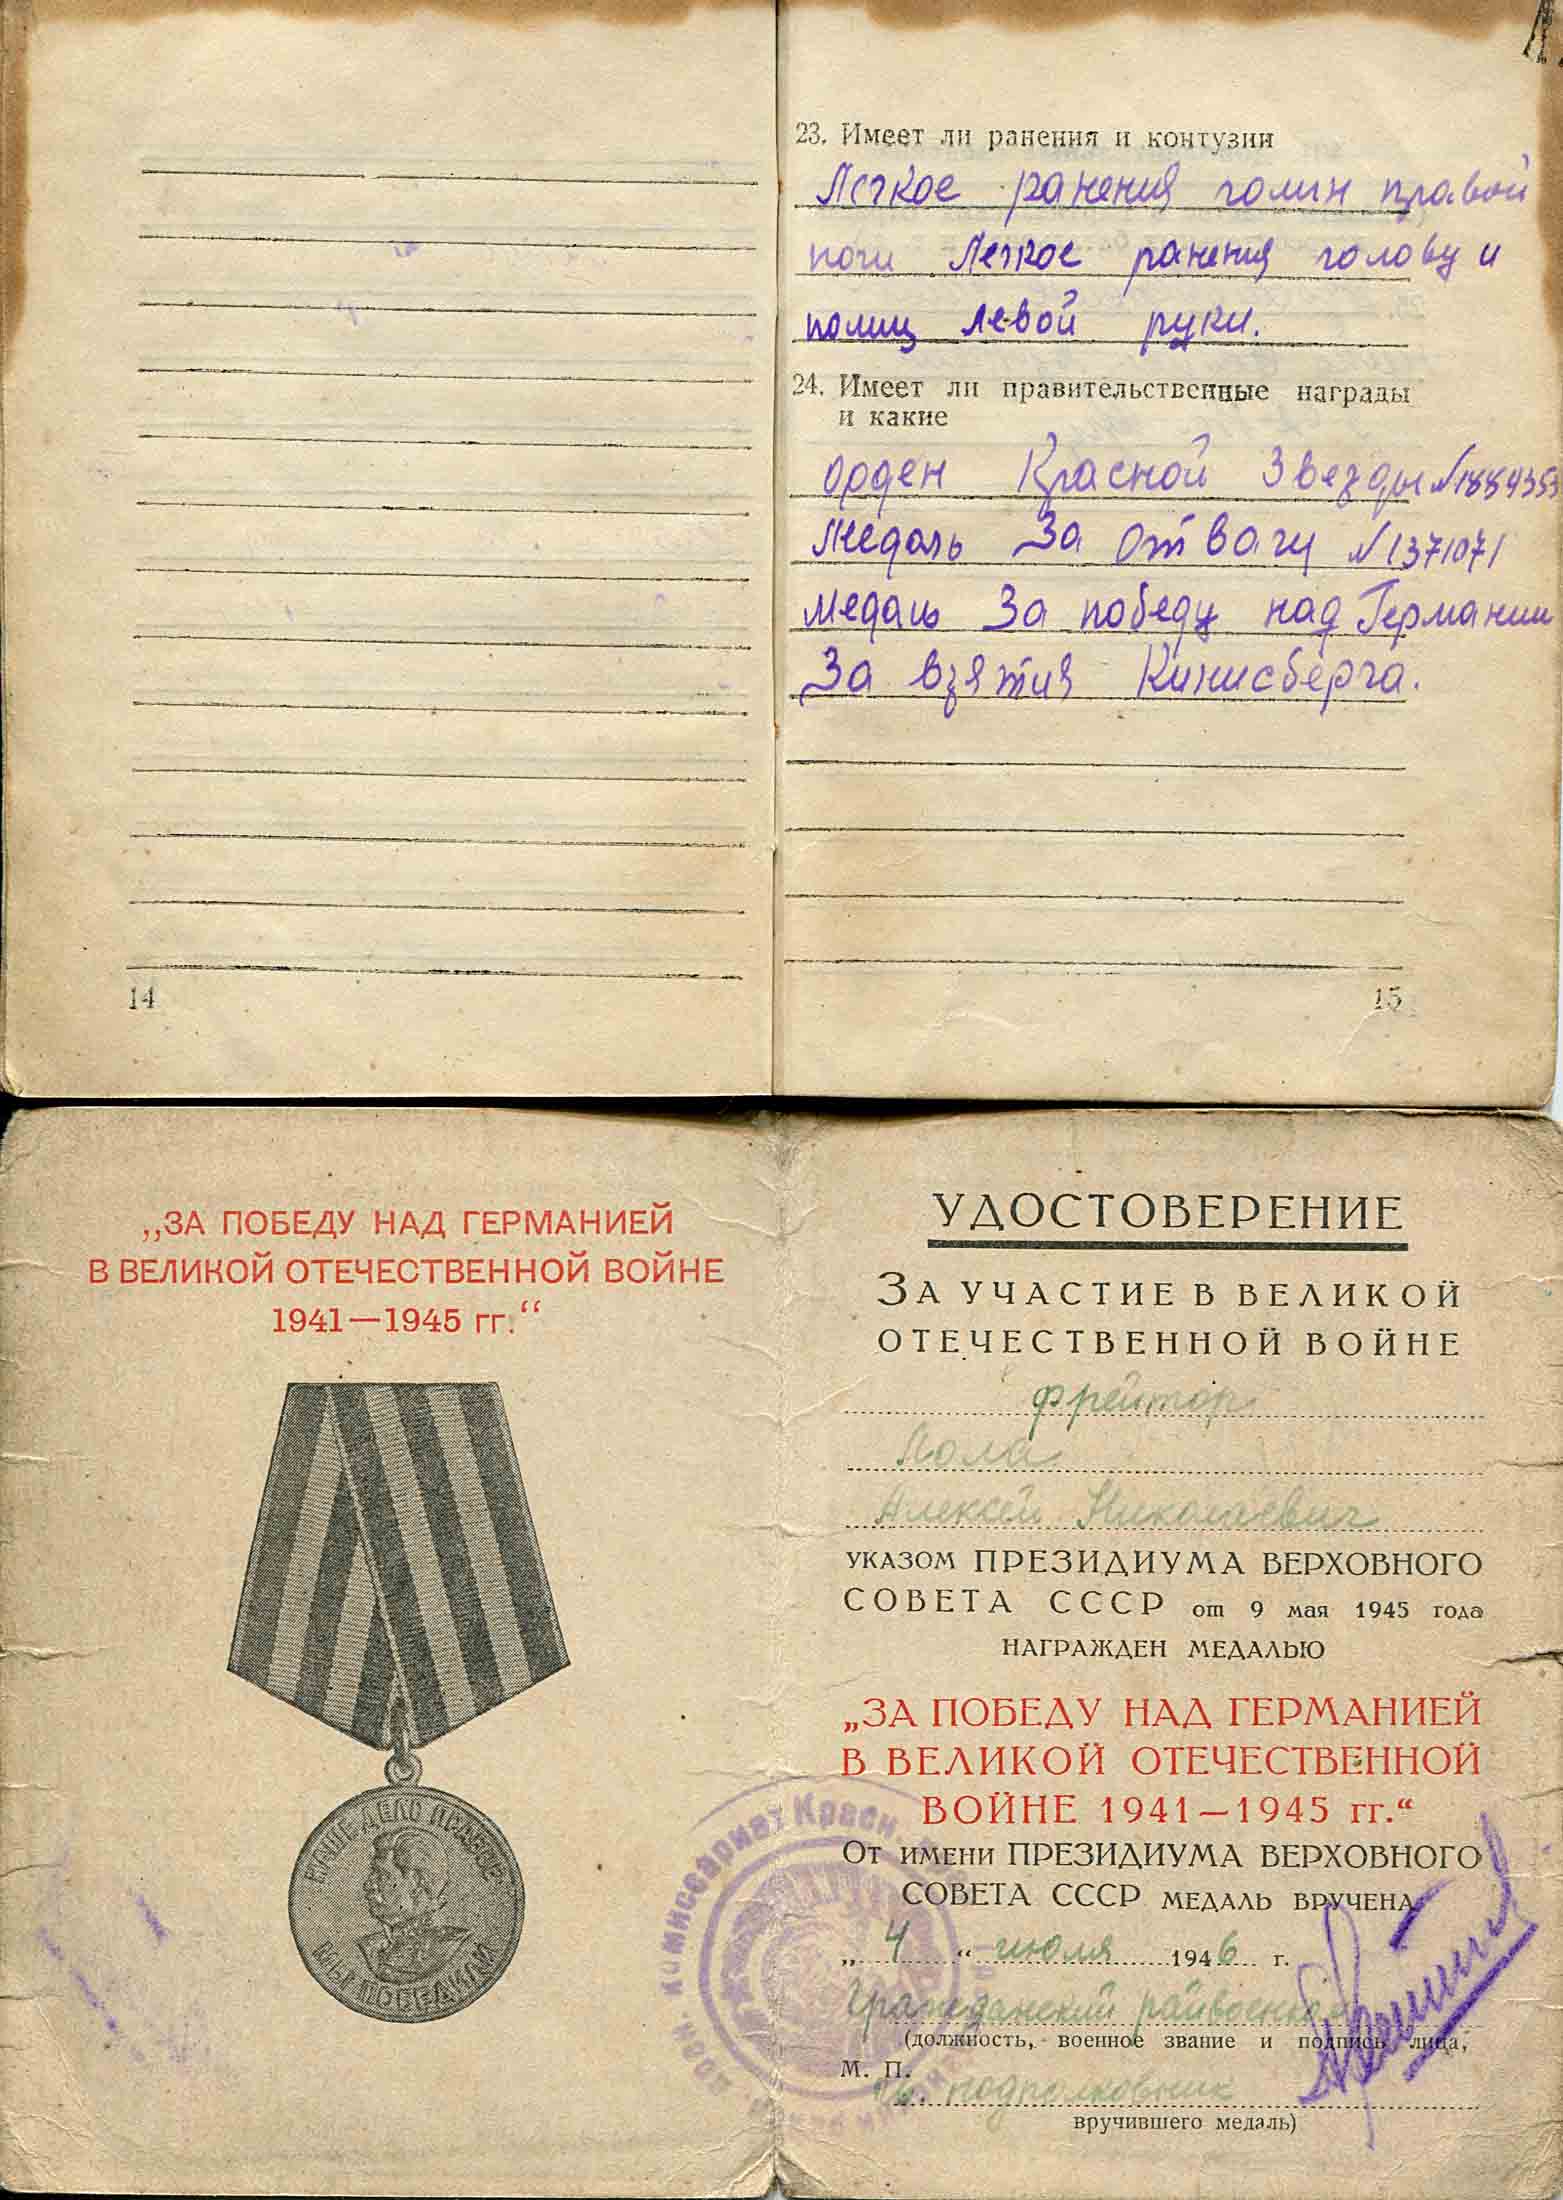 23. Имеет ли ранения и контузии
Легкое ранения голин правой
ноги Легкое ранения голову и
палиц левой руки.
24. Имеет ли правительственные награды
и какие
орден Красной Звезды №1884353
Медаль За отвагу №1371071
Медаль За победу над Германии
За взятия Кинисберга.
14
15
„ЗА ПОБЕДУ НАД ГЕРМАНИЕЙ
В ВЕЛИКОЙ ОТЕЧЕСТВЕННОЙ ВОЙНЕ
1941—1945 гг.“
НАШЕ ДЕЛО ПРАВОЕ
МЫ ПОБЕДИЛИ
УДОСТОВЕРЕНИЕ
ЗА УЧАСТИЕ В ВЕЛИКОЙ
ОТЕЧЕСТВЕННОЙ ВОЙНЕ
Фрейтор
Лола
Алексей Николаевич
УКАЗОМ ПРЕЗИДИУМА ВЕРХОВНОГО
СОВЕТА СССР от 9 мая 1945 года
НАГРАЖДЕН МЕДАЛЬЮ
„ЗА ПОБЕДУ НАД ГЕРМАНИЕЙ
В ВЕЛИКОЙ ОТЕЧЕСТВЕННОЙ
ВОЙНЕ 1941—1945 гг.“
ОТ ИМЕНИ ПРЕЗИДИУМА ВЕРХОВНОГО
СОВЕТА СССР МЕДАЛЬ ВРУЧЕНА
„ 4 “ июля 1946 г.
Гражданский райвоенком
(должность, военное звание и подпись лица,
М. П.
подполковник
вручившего медаль)
комиссариат Красн.